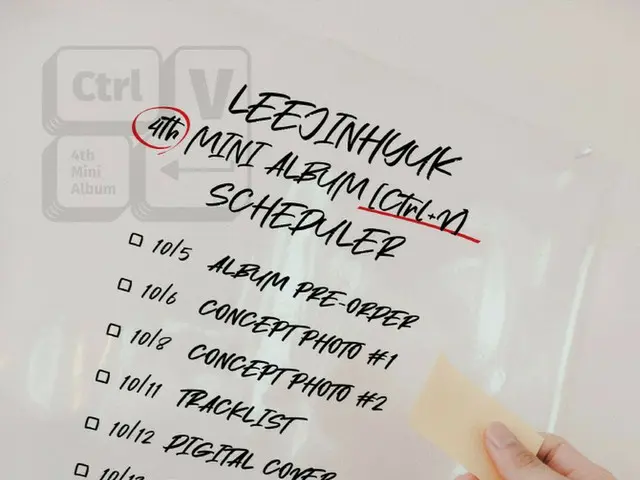 Ctrl
V
4th
Mini
Album
LEEJINHYUK
4th MINI ALBUM [Ctrl+V]
SCHEDULER
10/5 ALBUM PRE-ORDER
10/6 CONCEPT PHOTO #1
10/8 CONCEPT PHOTO #2
10/11 TRACKLIST
10/12 DIGITAL COVER